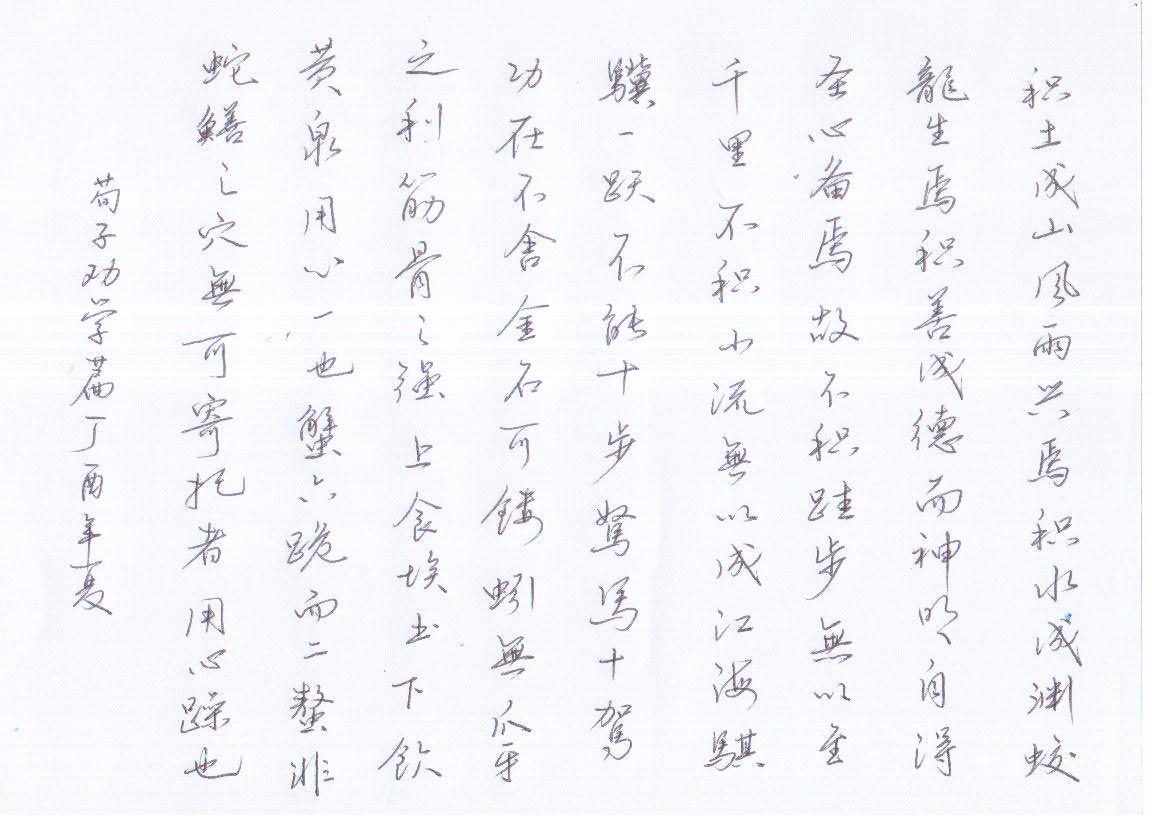 积土成山风雨兴焉积水成渊蛟
龍生焉积善成德而神明自得
圣心备焉故不积跬步無以至
千里不积小流無以成江海騏
驥一跃不能十步驽馬十驾
功在不舍金石可镂蚓無爪牙
之利筋骨之强上食埃土下飲
黄泉用心一也蟹六跪而二螯非
蛇鳝之穴無可寄托者用心躁也
荀子劝学篇丁酉年夏